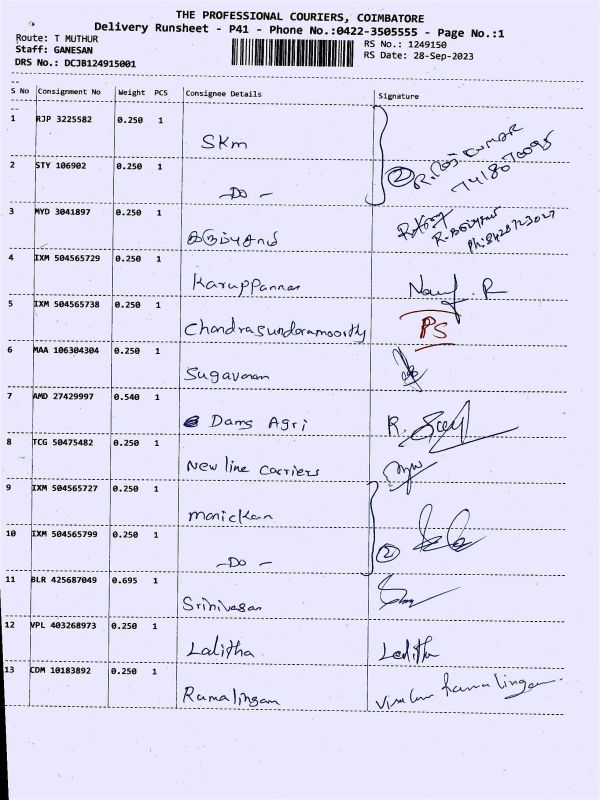 THE PROFESSIONAL COURIERS, COIMBATORE
Delivery Runsheet - P41 - Phone No.:0422-3505555 - Page No.:1
Route: T MUTHUR
RS No.: 1249150
Staff: GANESAN
RS Date: 28-Sep-2023
DRS No.: DCJB124915001
S No Consignment No Weight PCS Consignee Details Signature
1 RJP 3225582 0.250 1 SKm
2 STY 106902 0.250 1 -Do-
② 7418070095
3 MYD 3041897 0.250 1
Ph:8428723027
4 IXM 504565729 0.250 1 Karuppannan
5 IXM 504565738 0.250 1 Chandrasundaramoorthy PS
6 MAA 106304304 0.250 1 Sugavanam
7 AMD 27429997 0.540 1 Dams Agri R.
8 TCG 50475482 0.250 1 New line Carriers
9 IXM 504565727 0.250 1 manickam
10 IXM 504565799 0.250 1 -Do- ②
11 BLR 425687049 0.695 1 Srinivasan
12 VPL 403268973 0.250 1 Lalitha Lalitha
13 CDM 10183892 0.250 1 Ramalingam